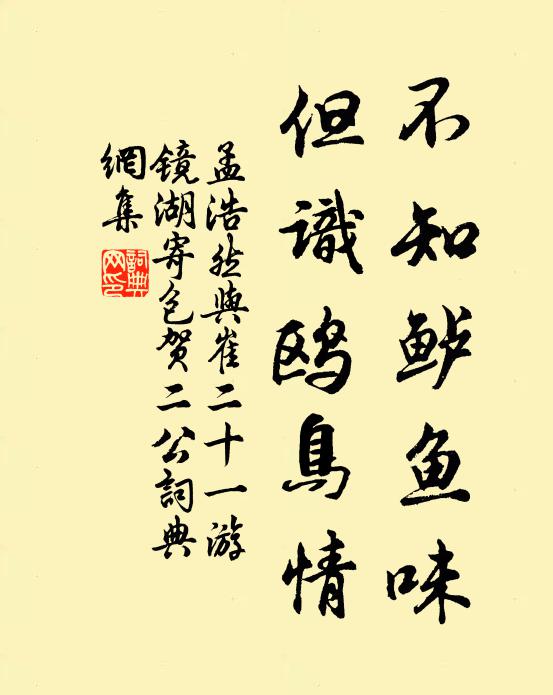 不知鲈鱼味
但識鸥鳥情
孟浩然與崔二十一游
镜湖寄包贺二公詞典
網集
詞典网印